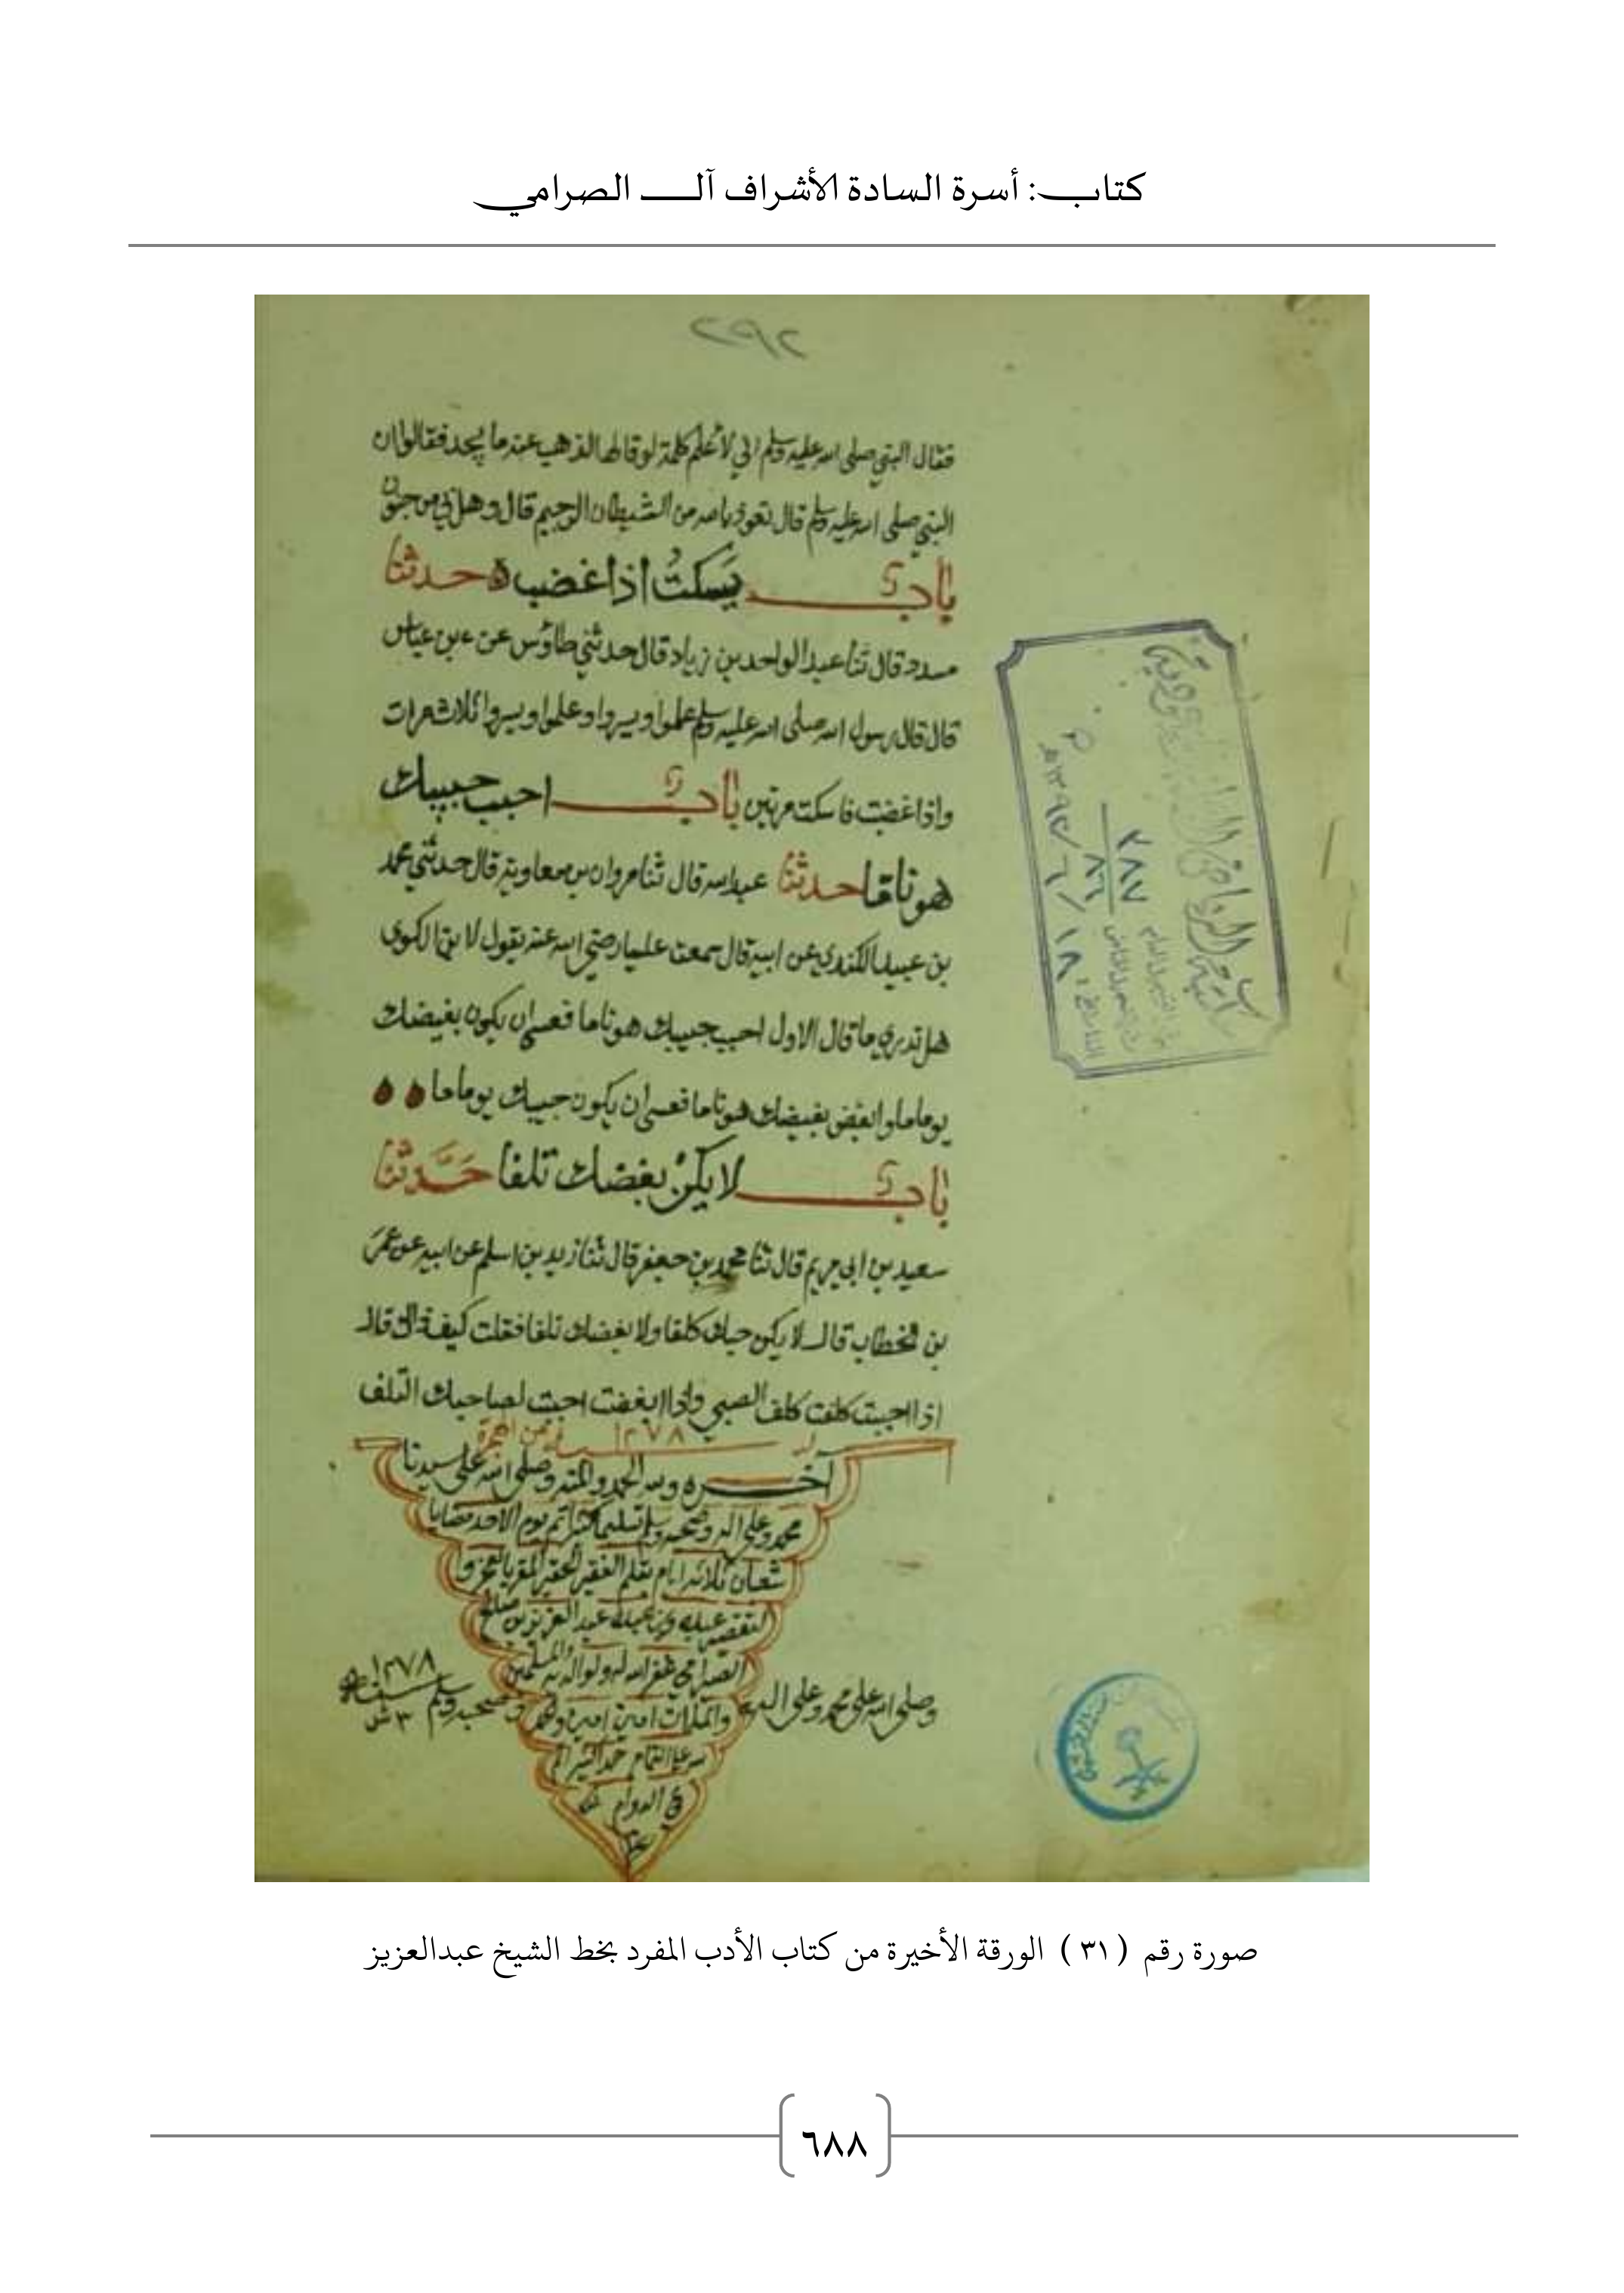 كتاب: أسرة السادة الأشراف آل الصرامي
فقال النبي صلى الله عليه وسلم اني لاعلم كلمة لو قالها لذهب عنه ما يجد فقالوا ان
النبي صلى الله عليه وسلم قال تعوذ بالله من الشيطان الرجيم قال وهل بي من جنون
باب يسكت اذا غضب حدثنا
مسدد قال ثنا عبد الواحد بن زياد قال حدثني طاوس عن بن عباس
قال قال رسول الله صلى الله عليه وسلم علموا ويسروا وعلموا ويسروا ثلاث مرات
واذا غضبت فاسكت مرتين باب احبب حبيبك
هونا ما حدثنا عبد الله قال ثنا مروان بن معاوية قال حدثني محمد
بن عبيد الكندي عن ابيه قال سمعت عليا رضي الله عنه يقول لابن الكوى
هل تدري ما قال الاول احبب حبيبك هونا ما فعسى ان يكون بغيضك
يوما ما وابغض بغيضك هونا ما فعسى ان يكون حبيبك يوما ما
باب لا يكن بغضك تلفا حدثنا
سعيد بن ابي مريم قال ثنا محمد بن جعفر قال ثنا زيد بن اسلم عن ابيه عن عمر
بن الخطاب قال لا يكن حبك كلفا ولا بغضك تلفا فقلت كيف ذاك قال
اذا احببت كلفت كلف الصبي واذا ابغضت احببت لصاحبك التلف
١٢٧٨ من الهجرة
آخره ولله الحمد والمنه وصلى الله على سيدنا
محمد وعلى اله وصحبه وسلم تسليما كثيرا تم يوم الاحد
شعبان ثلاثة ايام بقلم الفقير الحقير المقر بالعجز و
التقصير عبده عبد العزيز بن صالح
الصرامي غفر الله له ولوالديه والمسلمين
والمسلمات امين امين
وصلى الله على محمد وعلى اله
وصحبه وسلم
١٢٧٨
٣ ش
صورة رقم (٣١) الورقة الأخيرة من كتاب الأدب المفرد بخط الشيخ عبدالعزيز
٦٨٨